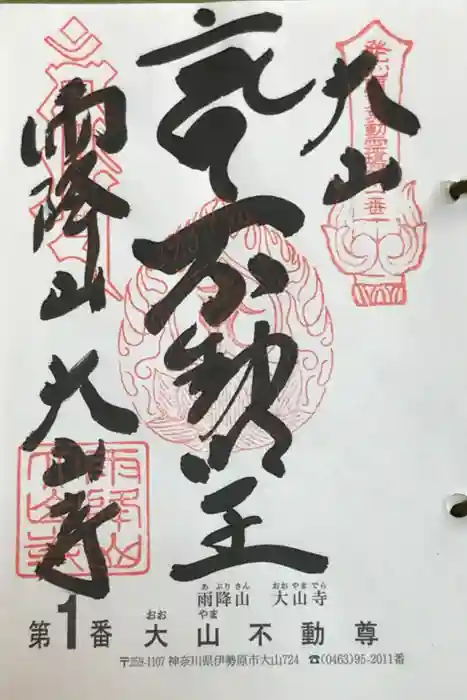 大山
不動明王
雨降山
大山寺
あ ぶり さん おお やま でら
雨降山 大山寺
おお やま
第1番 大山不動尊
〒259-1107 神奈川県伊勢原市大山724 ☎(0463)95-2011番